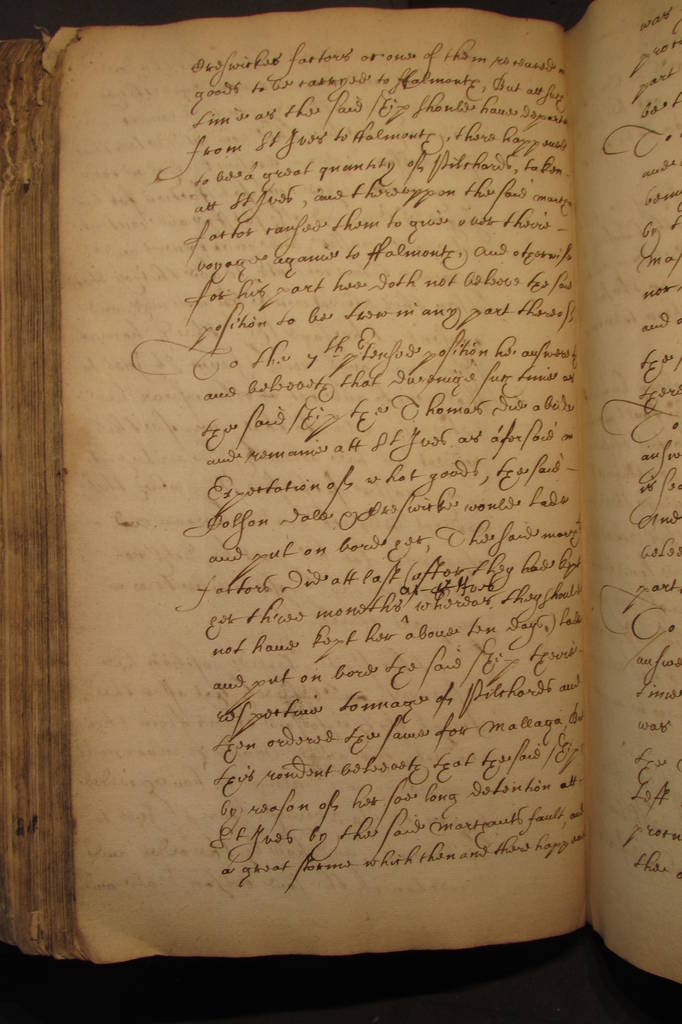 Preswickes factors or one of them procured
goods to be carryed to ffalmouth, But att such
time as the said shipp should have departed
from St Ives to ffalmouth, there happened
to be a great quantity of Pilchards, taken
att St Ives, and thereuppon the said
factor caused them to give over theire
voyage againe to ffalmouth, And otherwise
for his part hee doth not beleeve the said
position to be true in any part thereof
To the 7th ptensed position he answereth
and beleeveth that dureinge such time as
the said shipp the Thomas did abide
and remaine att St Ives as aforesaid in
Expectation of what goods, the said
Dolson dale Preswicke would lade
and put on bord her, The said
factors did att last (after they had kept
her three moneths at St Ives whereas they should
not have kept her above ten days,) lade
and put on bord the said shipp theire
respective tonnage of Pilchards and
then ordered the same for Mallaga But
this rondent beleeveth that the said shipp
by reason of her soe long detention att
St Ives by the said marchants fault, and
a great storme which then and there happened
was
part
be
To
and
by
not
and
the
To
answe
And
belee
part
To
answe
time
was
the
left
the